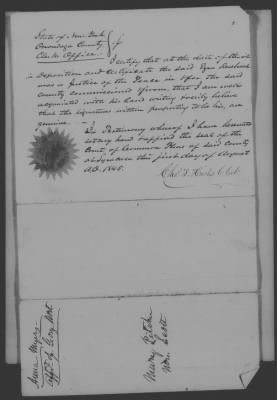 State of New York
Onondaga County
Clerks Office
I certify that at the date of the
Deposition and Certificate the said
was a Justice of the Peace in & for the said
County commissioned & sworn, that I am well
acquainted with his hand writing & verily believe
that the signatures within purporting to be his, are
genuine.
In Testimony whereof I have hereunto
set my hand & affixed the seal of the
Court of Common Pleas of said County
at Syracuse this first day of August
A.D. 1845.
Clerk
Anna Myers
Affdt of Geo